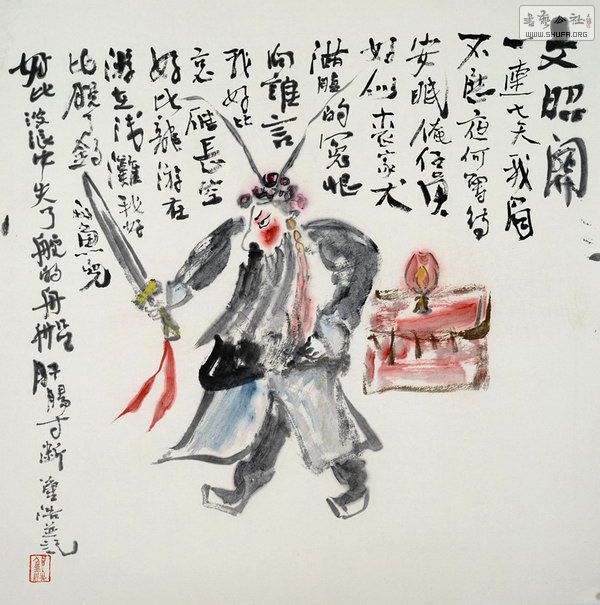 書藝公社
WWW.SHUFA.ORG
文昭關
一連七天我眉
不展夜何曾得
安眠俺伍員
好似喪家犬
滿腹的冤恨
向誰言
我好比
哀雁長空
好比龍游在
游在淺灘我好
比脫了鈎
的魚兒
好比波浪中失了舵的舟船肝腸寸斷浩並記